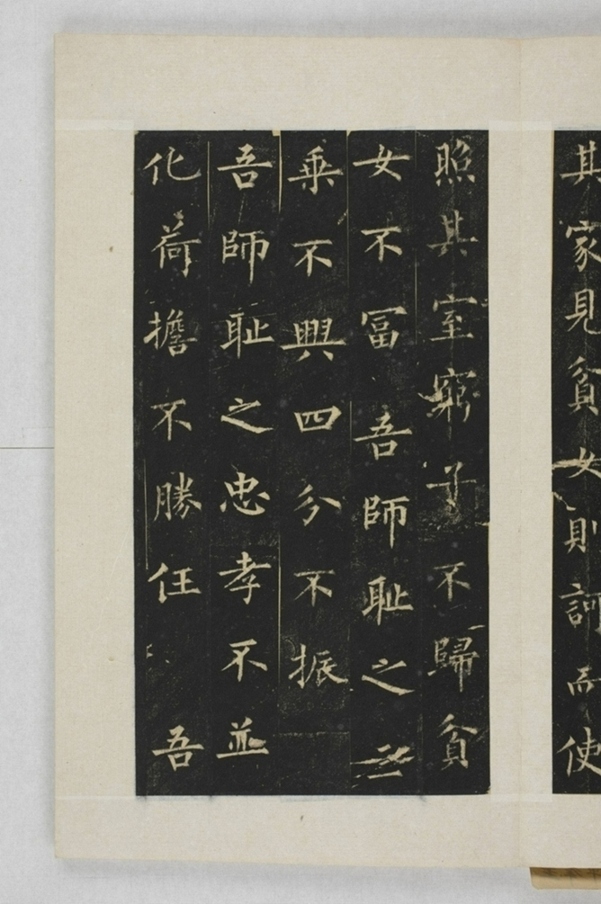 其家見貧女則訶而使
照其室窮子不歸貧
女不冨吾師恥之三
乗不興四分不振
吾師恥之忠孝不並
化荷擔不勝任吾